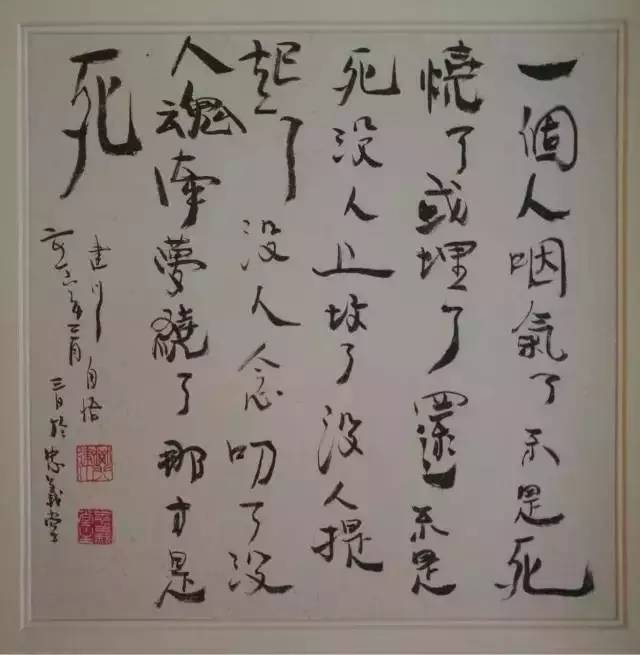 一個人咽氣了不是死
燒了或埋了還不是
死没人上坟了没人提
起了没人念叨了没
人魂牽夢繞了那才是
死
建川自悟
二〇一六年二月
三日於忠義堂